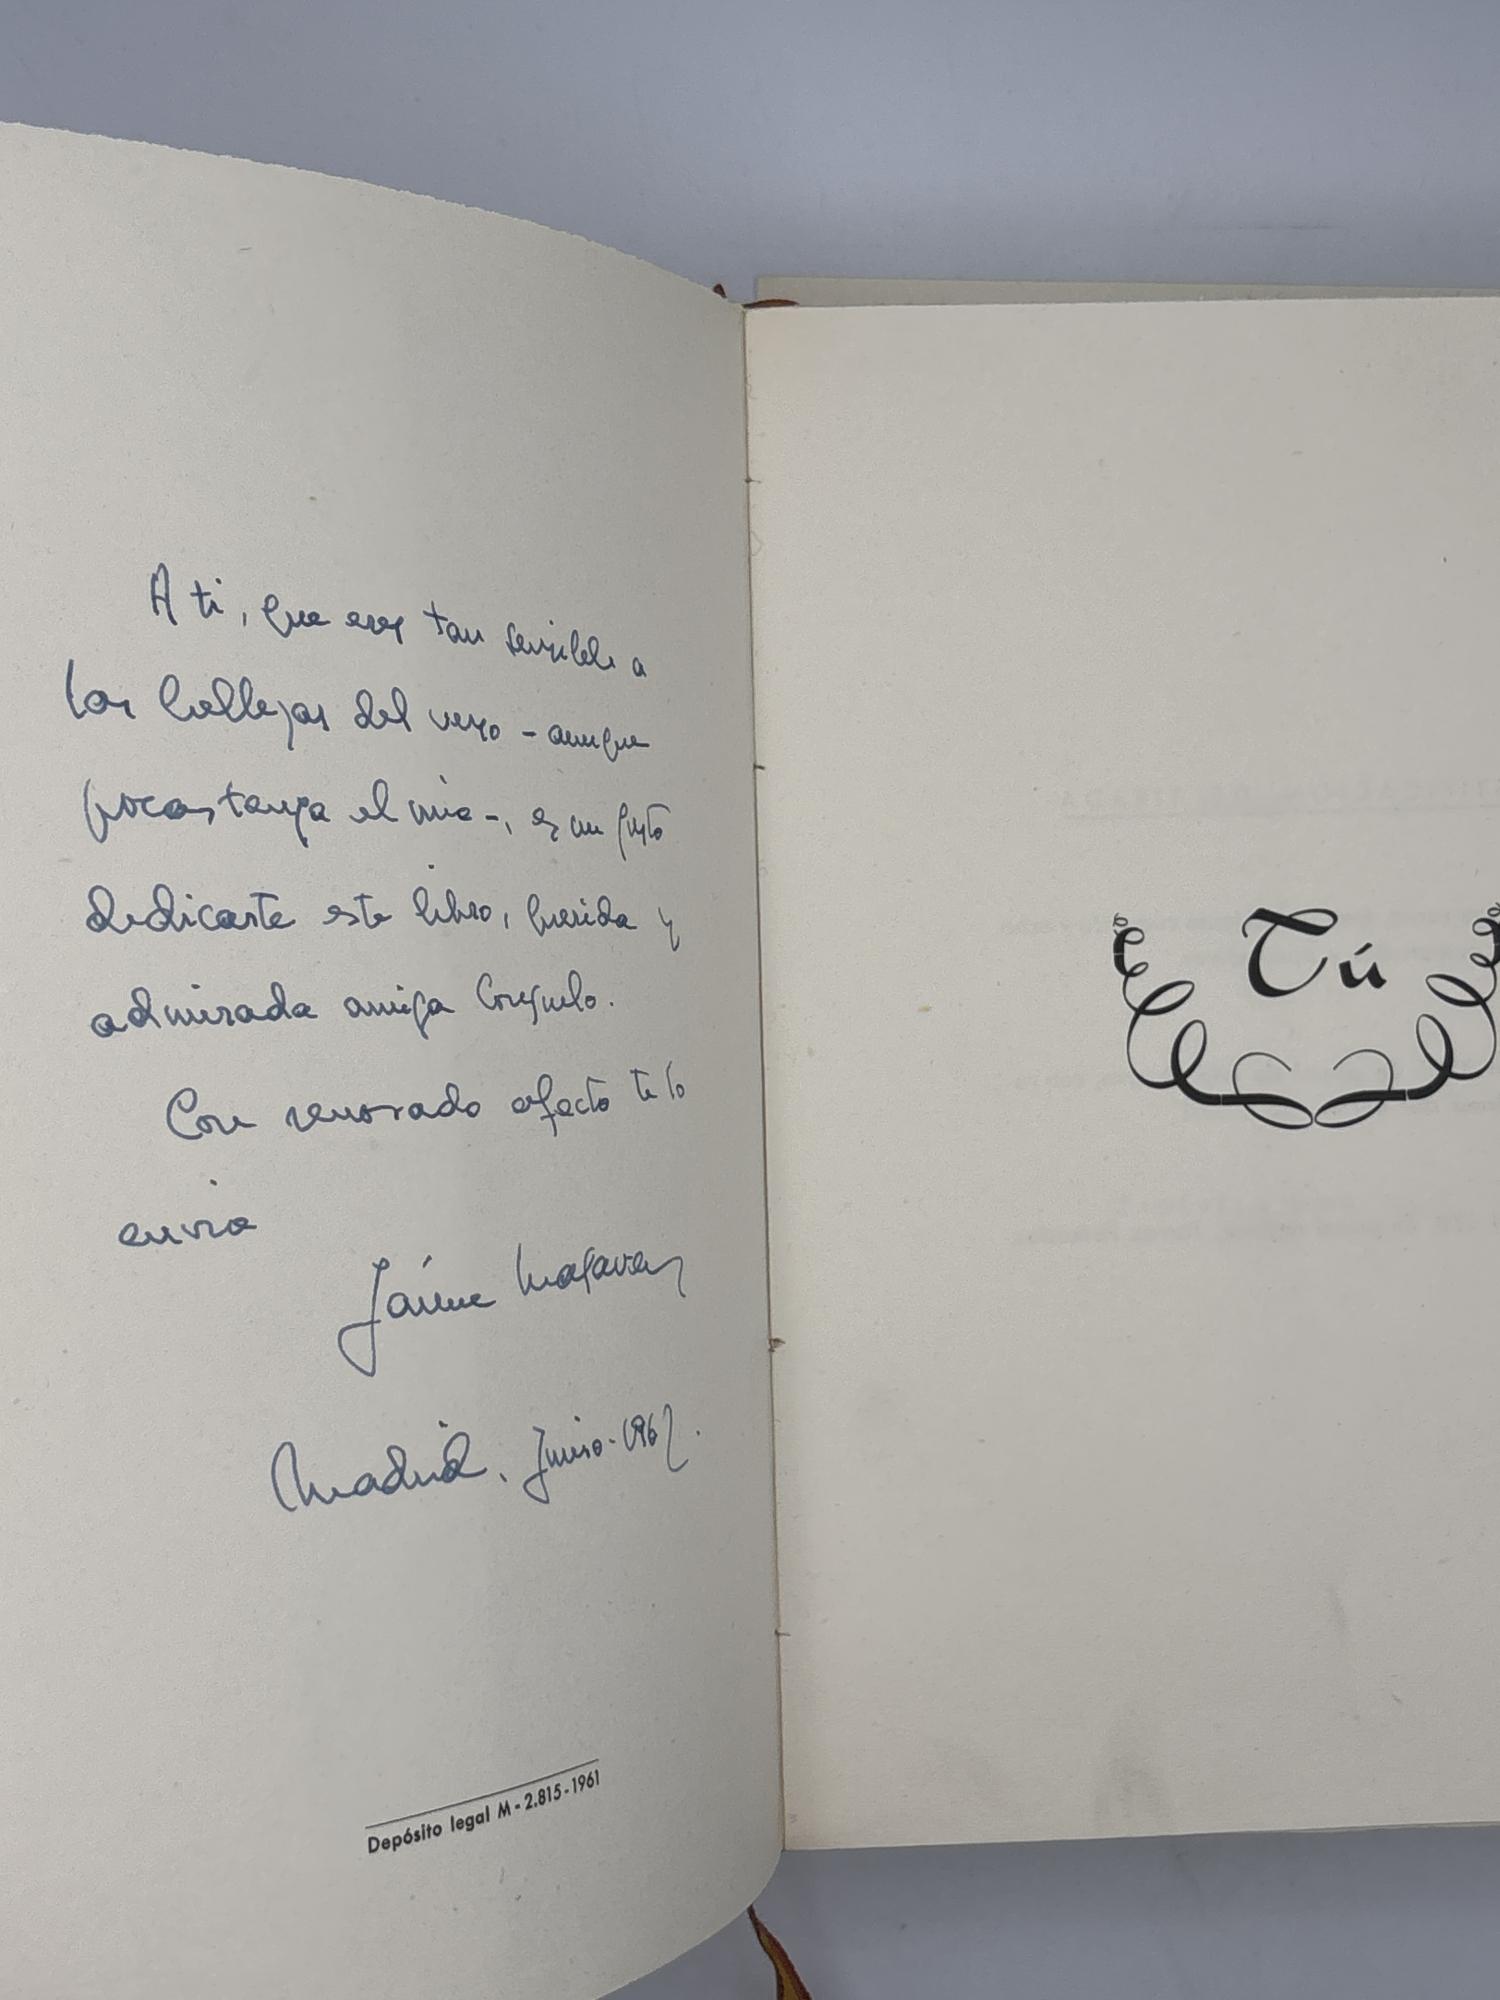 A ti, que eres tan sensible a
las bellezas del verso - aunque
pocas tenga el mio -, es un gusto
dedicarte este libro, querida y
admirada amiga Consuelo.
Con renovado afecto te lo
envia
Jaime
Madrid, Junio-1962.
Depósito legal M - 2.815 - 1961
Tú